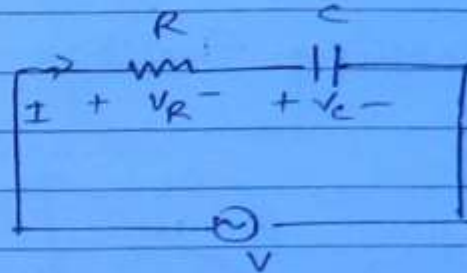 R C
I + V_R - + V_C -
V